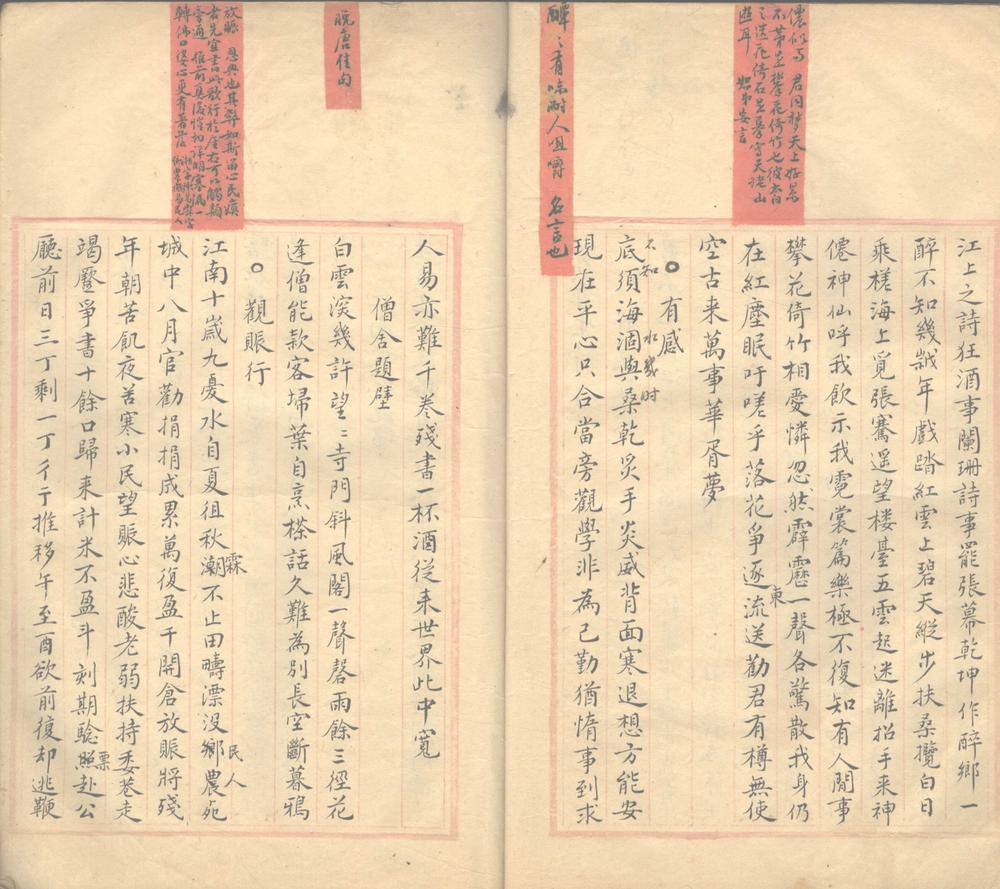 儂似與君同醉天上好夢
不第是攀花倚竹也彼太白
之送花倚石
遊耳
妄言
醰醰有味耐人咀嚼 名言也
江上之詩狂酒事闌珊詩事罷張幕乾坤作醉鄉一
醉不知幾越年戲踏紅雲上碧天縱步扶桑攬白日
乘槎海上覓張騫遥望楼臺五雲起迷離招手来神
僊神仙呼我飲示我霓裳篇樂極不復知有人間事
攀花倚竹相愛憐忽然霹靂一聲各驚散我身仍
在紅塵眠吁嗟乎落花爭逐流送勸君有樽無使
東
空古来萬事華胥夢
有感
不知 水幾時
底須海涸與桑乾炙手炎威背面寒退想方能安
現在平心只合當旁觀學非為己勤猶惰事到求
晚唐佳句
放賑恩典也其弊如斯留心民瘼
者先宜書此歌行於座右可以觸類
旁通
轉佛口婆心更有著落
人易亦難千卷殘書一杯酒從来世界此中寬
僧舍題壁
白雲深幾許望望寺門斜風閣一聲磬雨餘三徑花
逢僧能款客埽葉自烹樣話久難為別長空斷暮鴉
觀賑行
江南十歲九憂水自夏徂秋潮不止田疇漂沒鄉農死
霖
民人
城中八月官勸捐捐成累萬復盈千開倉放賑將殘
年朝苦飢夜苦寒小民望賑心悲酸老弱扶持委巷走
竭蹷爭書十餘口歸来計米不盈斗刻期驗照赴公
票
廳前日三丁剩一丁彳亍推移午至酉欲前復却逃鞭